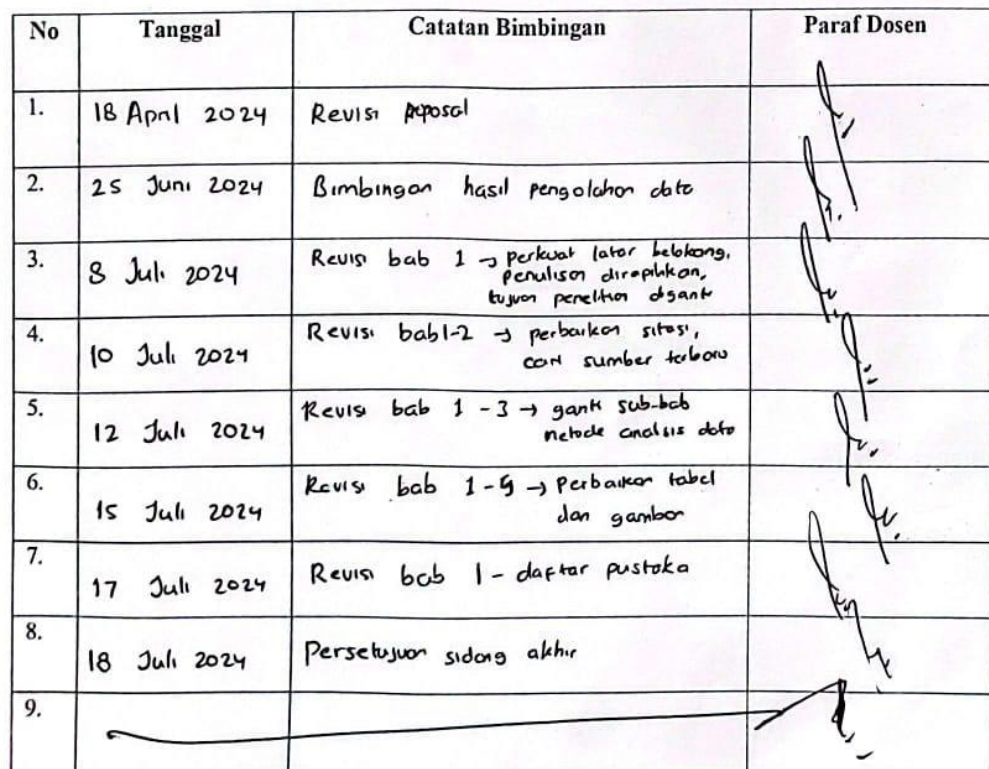 No Tanggal Catatan Bimbingan Paraf Dosen
1. 18 April 2024 Revisi proposal
2. 25 Juni 2024 Bimbingan hasil pengolahan data
3. 8 Juli 2024 Revisi bab 1 → perkuat latar belakang,
penulisan dirapihkan,
tujuan penelitian diganti
4. 10 Juli 2024 Revisi bab 1-2 → perbaikan sitasi,
cari sumber terbaru
5. 12 Juli 2024 Revisi bab 1 - 3 → ganti sub-bab
metode analisis data
6. 15 Juli 2024 Revisi bab 1 - → Perbaikan tabel
dan gambar
7. 17 Juli 2024 Revisi bab 1 - daftar pustaka
8. 18 Juli 2024 Persetujuan sidang akhir
9.